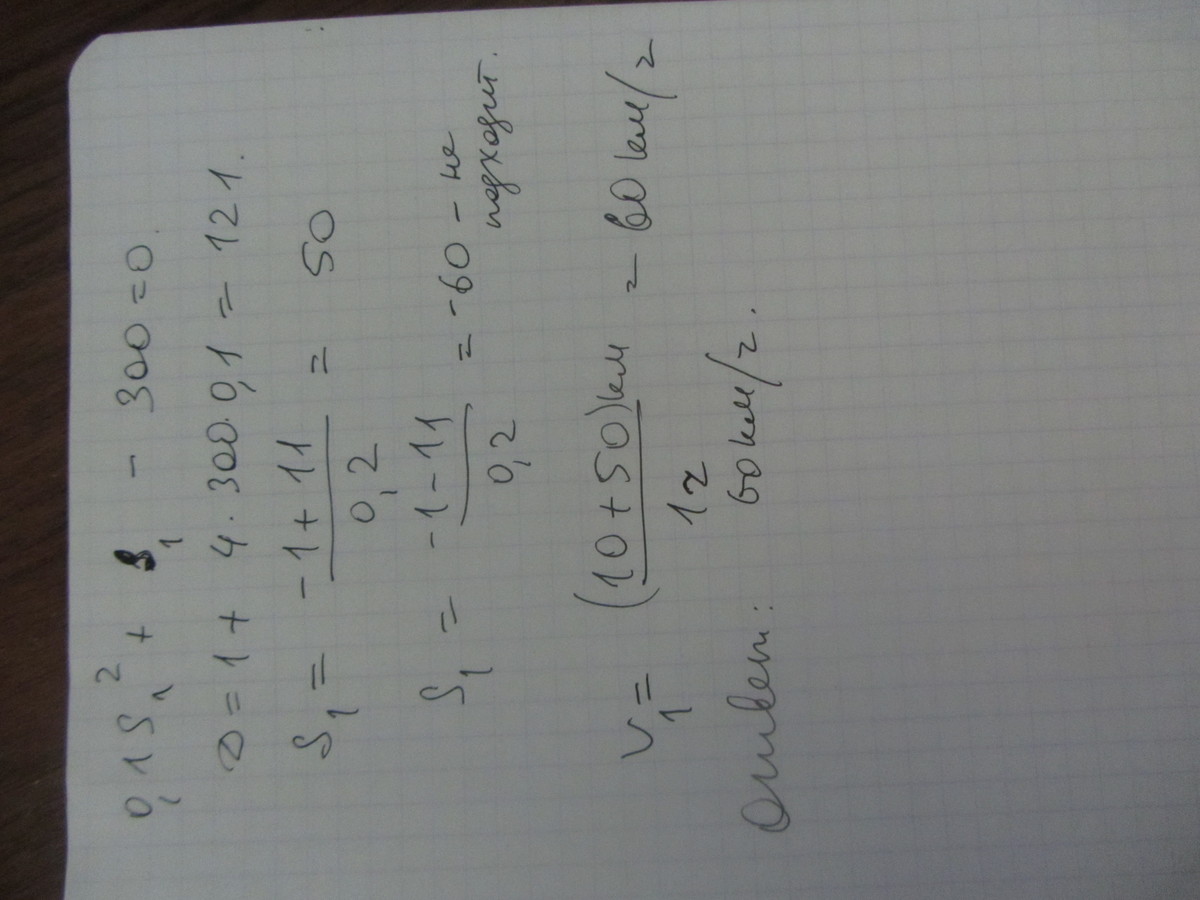 0,1S₁² + S₁ - 300 = 0.
D = 1 + 4 · 300 · 0,1 = 121.
S₁ = (-1 + 11)/0,2 = 50
S₁ = (-1 - 11)/0,2 = -60 - не
подходит.
V₁ = (10 + 50)км/1ч = 60 км/ч
Ответ: 60 км/ч.